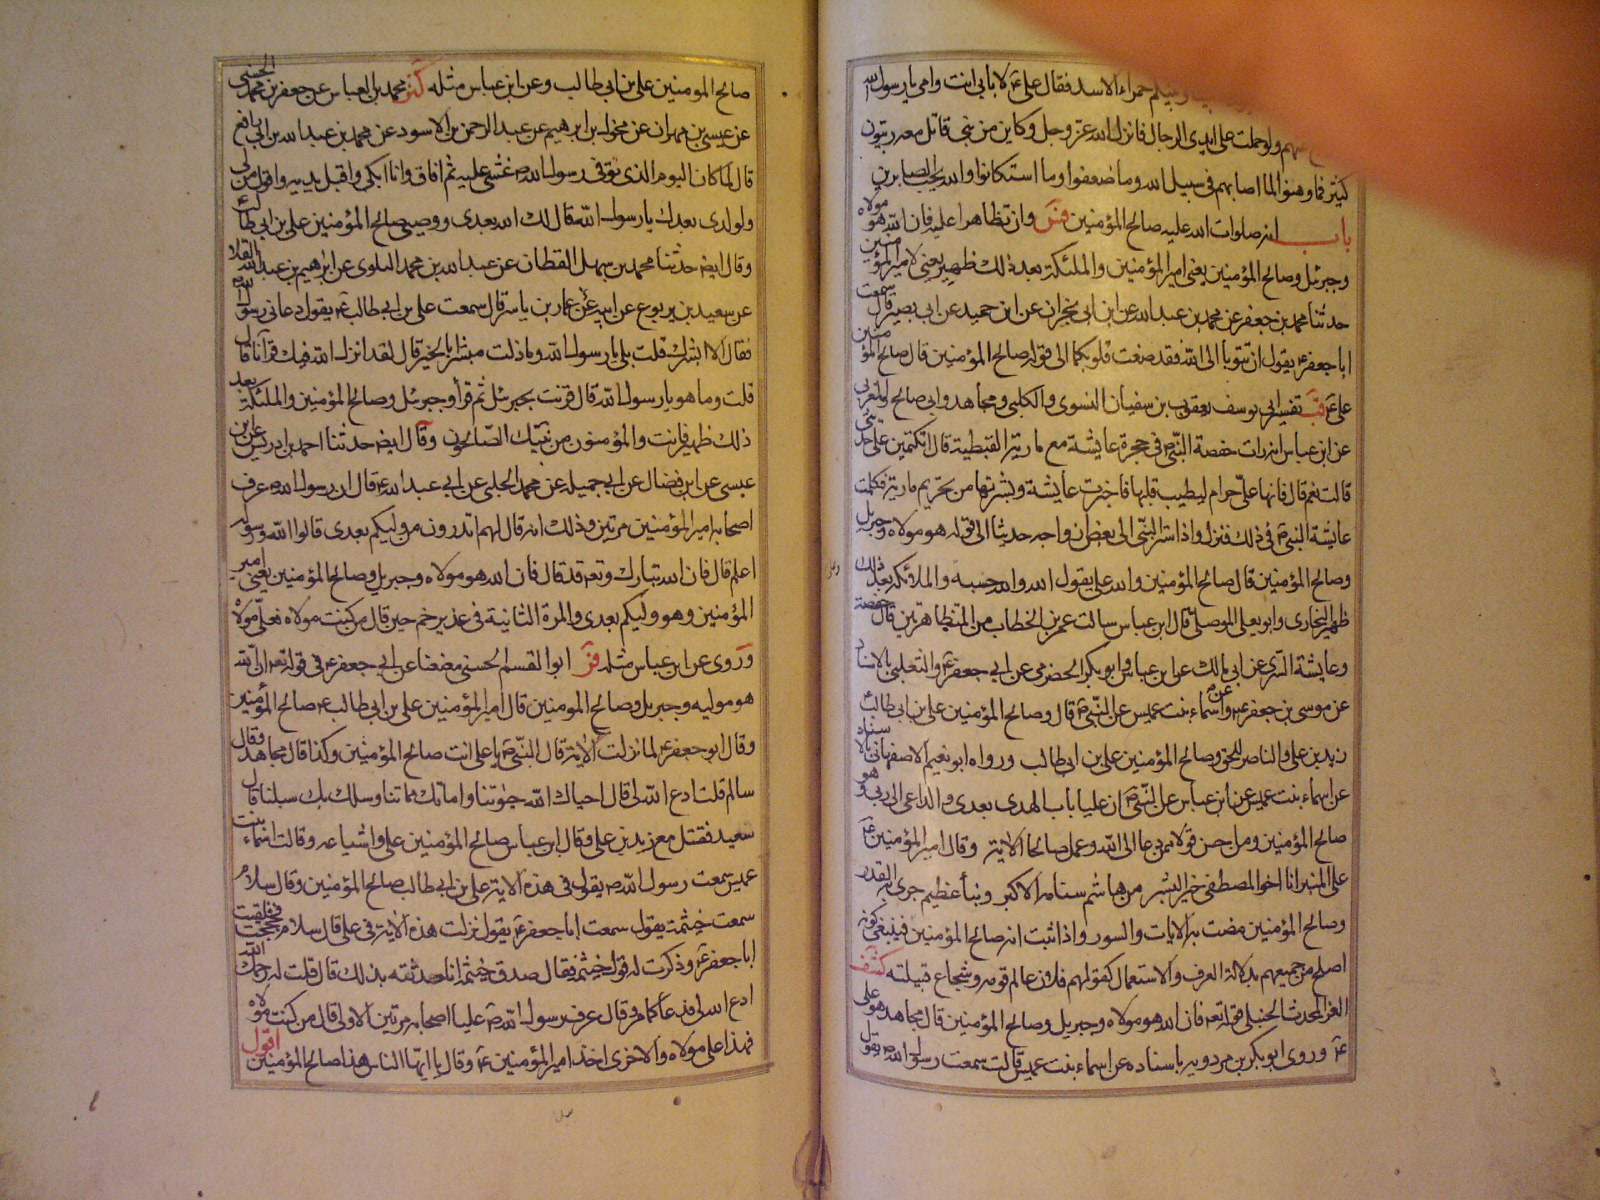 وعليكم حمراء الاسد فقال علي ع لا بابي انت وامي يا رسول الله
ولو حملت على ايدي الرجال فانزل الله عز وجل وكاين من نبي قاتل معه ربيون
كثير فما وهنوا لما اصابهم في سبيل الله وما ضعفوا وما استكانوا والله يحب الصابرين
باب انه صلوات الله عليه صالح المؤمنين فس وان تظاهرا عليه فان الله هو مولاه
وجبرئل وصالح المؤمنين يعني امير المؤمنين والملئكة بعد ذلك ظهير يعني لامير المؤمنين
حدثنا محمد بن جعفر عن محمد بن عبد الله عن ابن ابي نجران عن ابن حميد عن ابي بصير قال سمعت
ابا جعفر ع يقول ان تتوبا الى الله فقد صغت قلوبكما الى قوله صالح المؤمنين قال صالح المؤمنين
علي ع قب تفسير ابي يوسف يعقوب بن سفيان النسوي والكلبي ومجاهد وابي صالح والمغربي
عن ابن عباس انه رات حفصة النبي ص في حجرة عايشة مع مارية القبطية قال اتكتمين علي حديثي
قالت نعم قال فانها علي حرام ليطيب قلبها فاخبرت عايشة وبشرتها من تحريم مارية فكلمت
عايشة النبي ص في ذلك فنزل واذ اسر النبي الى بعض ازواجه حديثا الى قوله هو مولاه وجبريل
وصالح المؤمنين قال صالح المؤمنين والله علي يقول الله والله حسبه والملائكة بعد ذلك
ظهير البخاري وابو يعلى الموصلي قال ابن عباس سالت عمر بن الخطاب من المتظاهرتين قال حفصة
وعايشة السدي عن ابي مالك عن ابن عباس وابو بكر الحضرمي عن ابي جعفر ع والثعلبي بالاسناد
عن موسى بن جعفر ع وعن اسماء بنت عميس عن النبي ص قال وصالح المؤمنين علي بن ابي طالب ع
زيد بن علي والناصر للحق وصالح المؤمنين علي بن ابي طالب ورواه ابو نعيم الاصفهاني بالاسناد
عن اسماء بنت عميس عن ابن عباس عن النبي ص ان عليا باب الهدى بعدي والداعي الى ربي وهو
صالح المؤمنين ومن احسن قولا ممن دعا الى الله وعمل صالحا الاية وقال امير المؤمنين ع
على المنبر انا اخو المصطفى خير البشر من هاشم سنامه الاكبر ونبأ عظيم جرى به القدر
وصالح المؤمنين مضت به الايات والسور واذا ثبت انه صالح المؤمنين فينبغي كونه
اصلح من جميعهم بدلالة العرف والاستعمال كقولهم فلان عالم قومه وشجاع قبيلته كشف
العز المحدث الحنبلي قوله تعم فان الله هو مولاه وجبريل وصالح المؤمنين قال مجاهد هو علي
ع وروى ابو بكر بن مردويه باسناده عن اسماء بنت عميس قالت سمعت رسول الله ص يقول
صالح المومنين علي بن ابي طالب وعن ابن عباس مثله كنز محمد بن العباس عن جعفر بن محمد الحسني
عن عيسى بن مهران عن مخول بن ابرهيم عن عبد الرحمن بن الاسود عن محمد بن عبد الله بن ابي رافع
قال لما كان اليوم الذي توفي رسول الله ص غشي عليه ثم افاق وانا ابكي واقبل يديه واقول من لي
ولولدي بعدك يا رسول الله قال لك الله بعدي ووصيي صالح المؤمنين علي بن ابي طالب
وقال ايضا حدثنا محمد بن سهل القطان عن عبد الله بن محمد البلوي عن ابرهيم بن عبد الله القلا
عن سعيد بن يربوع عن ابيه عن عمار بن ياسر قال سمعت علي بن ابي طالب ع يقول دعاني رسول الله
فقال الا ابشرك قلت بلى يا رسول الله وما زلت مبشرا بالخير قال لقد انزل الله فيك قرآنا قال
قلت وما هو يا رسول الله قال قرنت بجبرئل ثم قرأ وجبرئل وصالح المؤمنين والملئكة بعد
ذلك ظهير فانت والمؤمنون من بنيك الصالحون وقال ايضا حدثنا احمد بن ادريس عن ابن
عيسى عن ابن فضال عن ابي جميلة عن محمد الحلبي عن ابي عبد الله ع قال ان رسول الله عرف
اصحابه امير المؤمنين مرتين وذلك انه قال لهم اتدرون من وليكم بعدي قالوا الله ورسوله
اعلم قال فان الله تبارك وتعم قد قال فان الله هو مولاه وجبريل وصالح المؤمنين يعني امير
المؤمنين وهو وليكم بعدي والمرة الثانية في غدير خم حين قال من كنت مولاه فعلي مولاه
وروى عن ابن عباس مثله فر ابو القسم الحسني معنعنا عن ابي جعفر ع في قوله تعم ان الله
هو موليه وجبريل وصالح المومنين قال امير المؤمنين علي بن ابي طالب ع صالح المؤمنين
وقال ابو جعفر ع لما نزلت الاية قال النبي ص يا علي انت صالح المؤمنين وكذا قال مجاهد وقال
سالم قلت ادع الله لي قال احياك الله حيوتنا واماتك مماتنا وسلك بك سبلنا قال
سعيد فقتل مع زيد بن علي وقال ابن عباس صالح المؤمنين علي واشياعه وقالت اسماء بنت
عميس سمعت رسول الله ص يقول في هذه الاية علي بن ابي طالب صالح المؤمنين وقال سلام
سمعت خيثمة يقول سمعت ابا جعفر ع يقول نزلت هذه الاية في علي قال سلام فحججت فلقيت
ابا جعفر ع وذكرت له قول خيثمة فقال صدق خيثمة انا حدثته بذلك قال قلت له رحمك الله
ادع الله لي فدعا كما مر قال عرف رسول الله ص عليا اصحابه مرتين الاولى قال من كنت مولاه
فهذا علي مولاه والاخرى اخذ امير المؤمنين ع وقال يا ايها الناس هذا صالح المؤمنين اقول